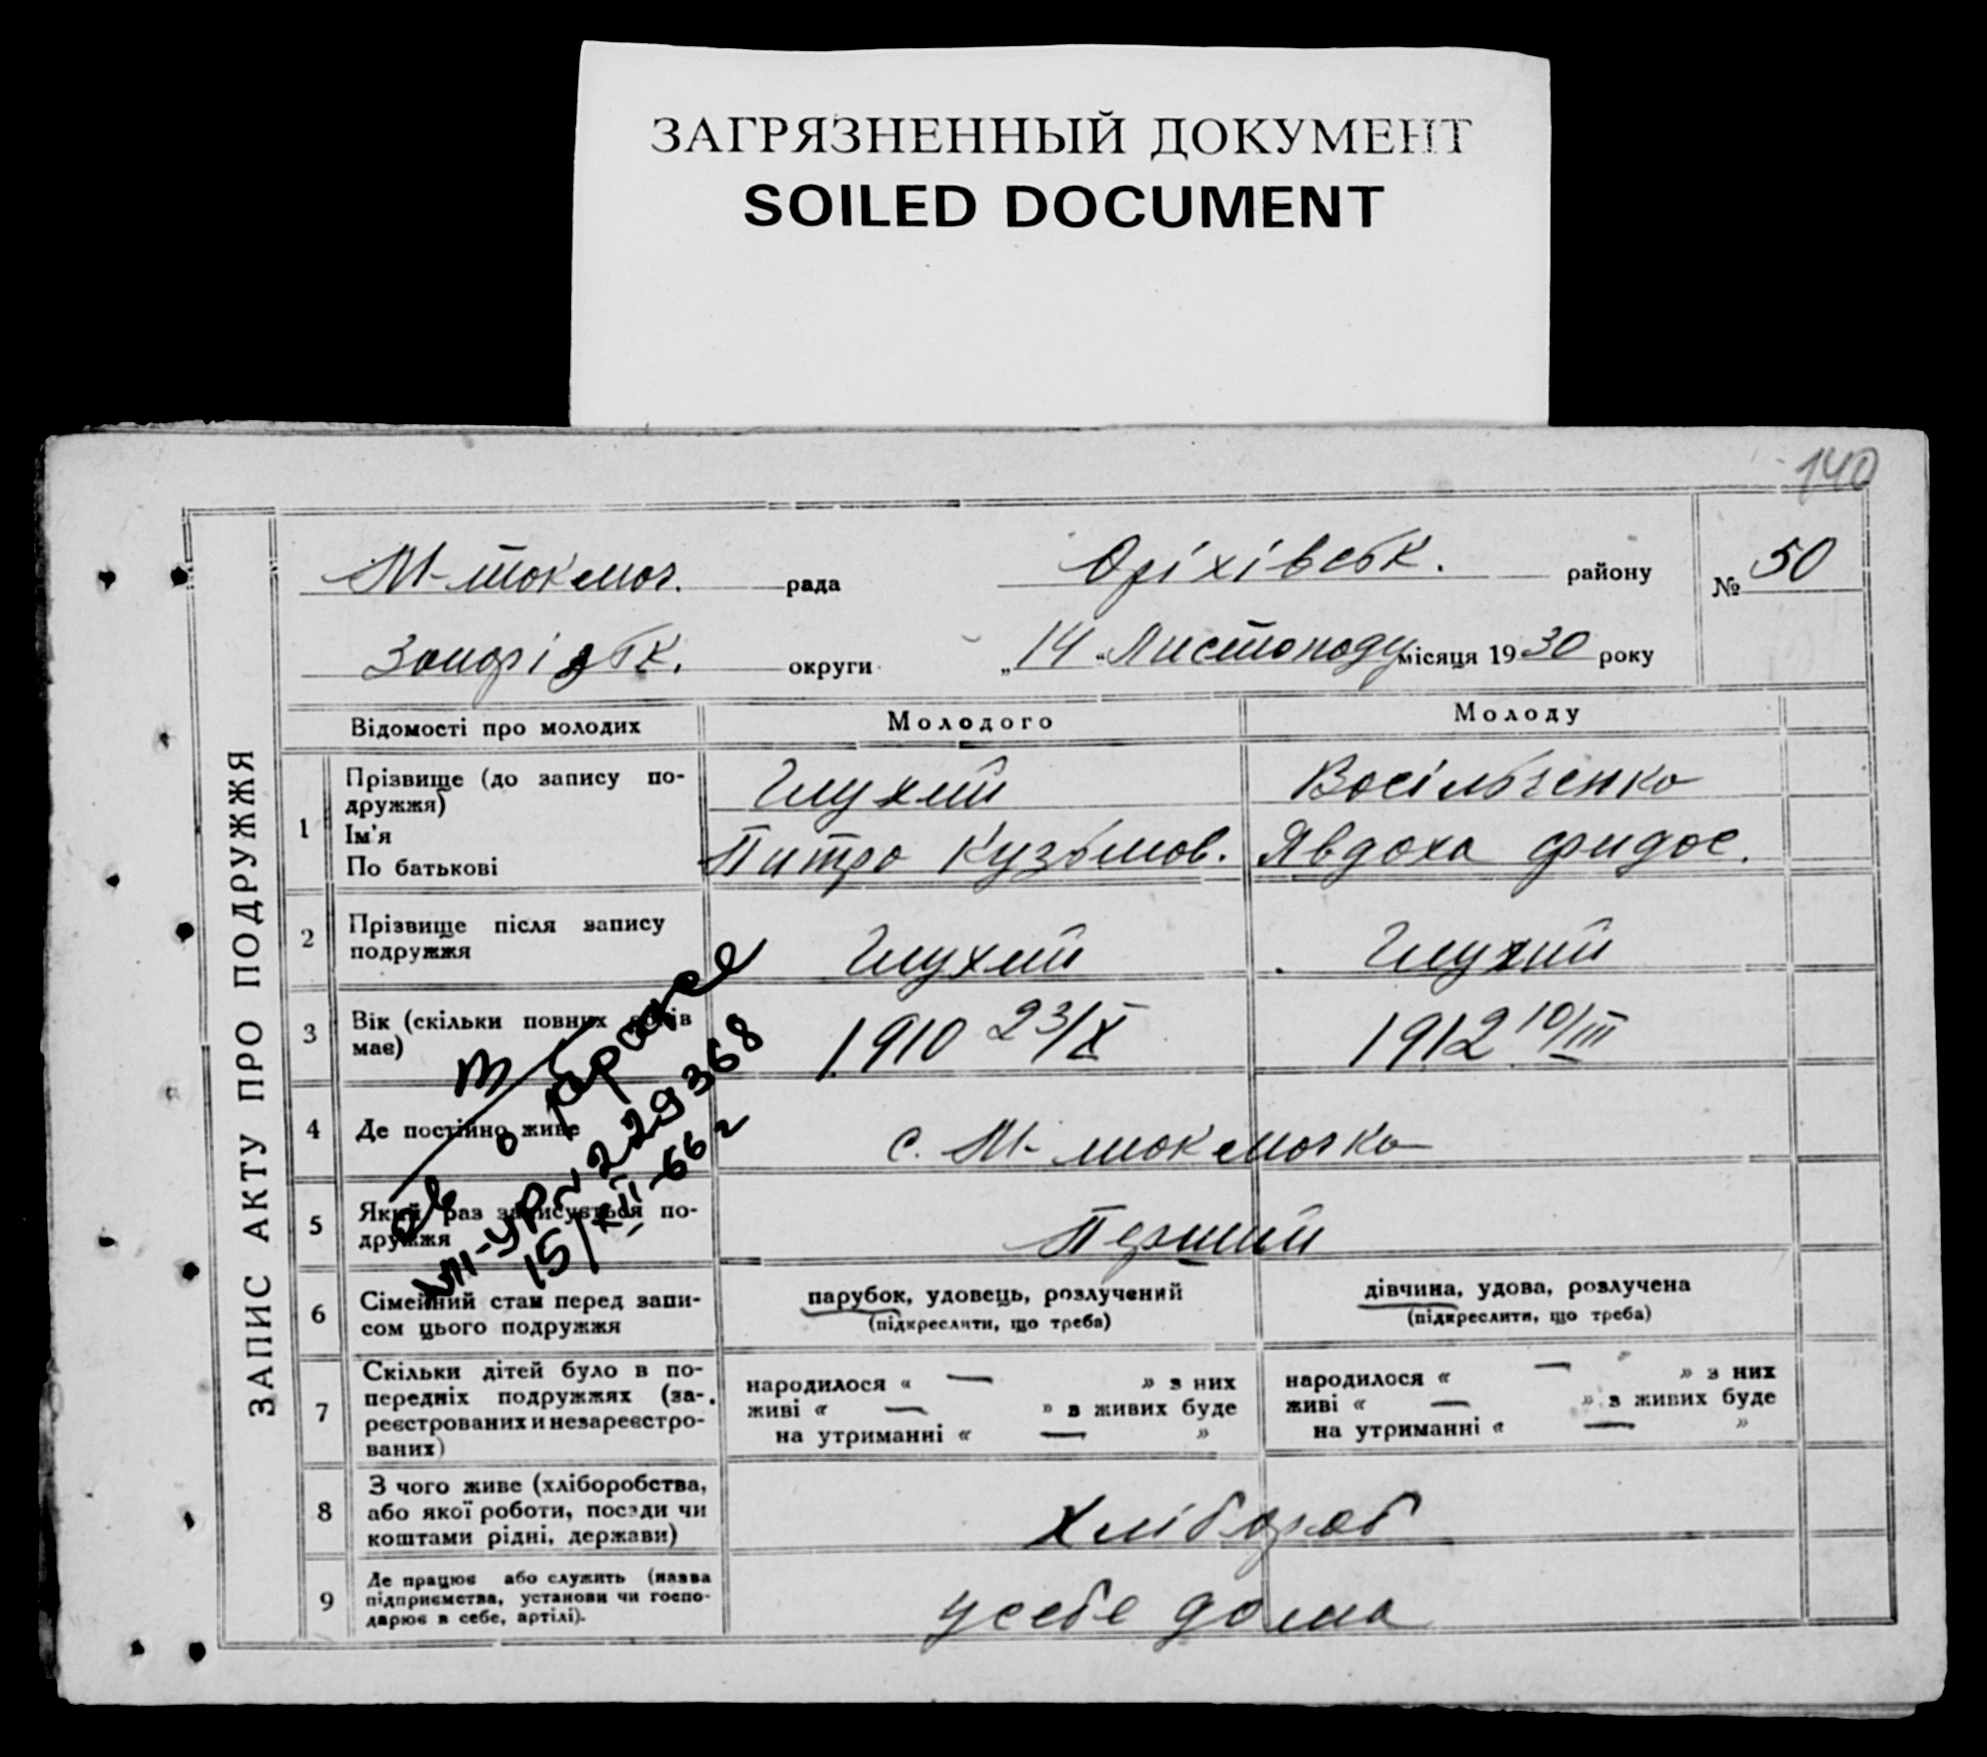 ЗАГРЯЗНЕННЫЙ ДОКУМЕНТ
SOILED DOCUMENT
140
ЗАПИС АКТУ ПРО ПОДРУЖЖЯ
М-токмоч. рада Оріхівськ. району № 50
округи „14“ Листоподу місяця 1930 року
Відомості про молодих Молодого Молоду
1 Прізвище (до запису по-
дружжя) Глухий Восільченко
Ім'я
По батькові Питро Кузьмов. Явдоха Фидос.
2 Прізвище після запису
подружжя Глухий Глухий
3 Вік (скільки повних років
має) 1910 23/X 1912 10/III
4 Де постійно живе с. М-токмочка
5 Який раз записується по-
дружжя Перший
6 Сімейний стан перед запи-
сом цього подружжя
парубок, удовець, розлучений
(підкреслити, що треба)
дівчина, удова, розлучена
(підкреслити, що треба)
7 Скільки дітей було в по-
передніх подружжях (за-
реєстрованих и незареєстро-
ваних)
народилося « — » з них
живі « — » з живих буде
на утриманні « — »
народилося « — » з них
живі « — » з живих буде
на утриманні « — »
8 З чого живе (хліборобства,
або якої роботи, посади чи
коштами рідні, держави) Хлібороб
9 Де працює або служить (назва
підприємства, установи чи госпо-
дарює в себе, артілі). усебе дома
св о браке
VIII-УР № 229368
15/XII-66 г